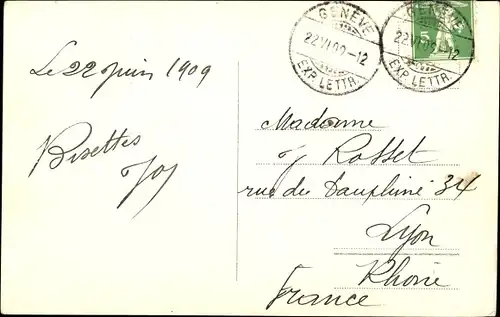 GENÈVE
22.VI.09-12
EXP. LETTR.
GENÈVE
22.VI.09-12
EXP. LETTR.
5
Le 22 juin 1909
Bisettes
Madame
J Rosset
rue du Dauphiné 34
Lyon
Rhône
France